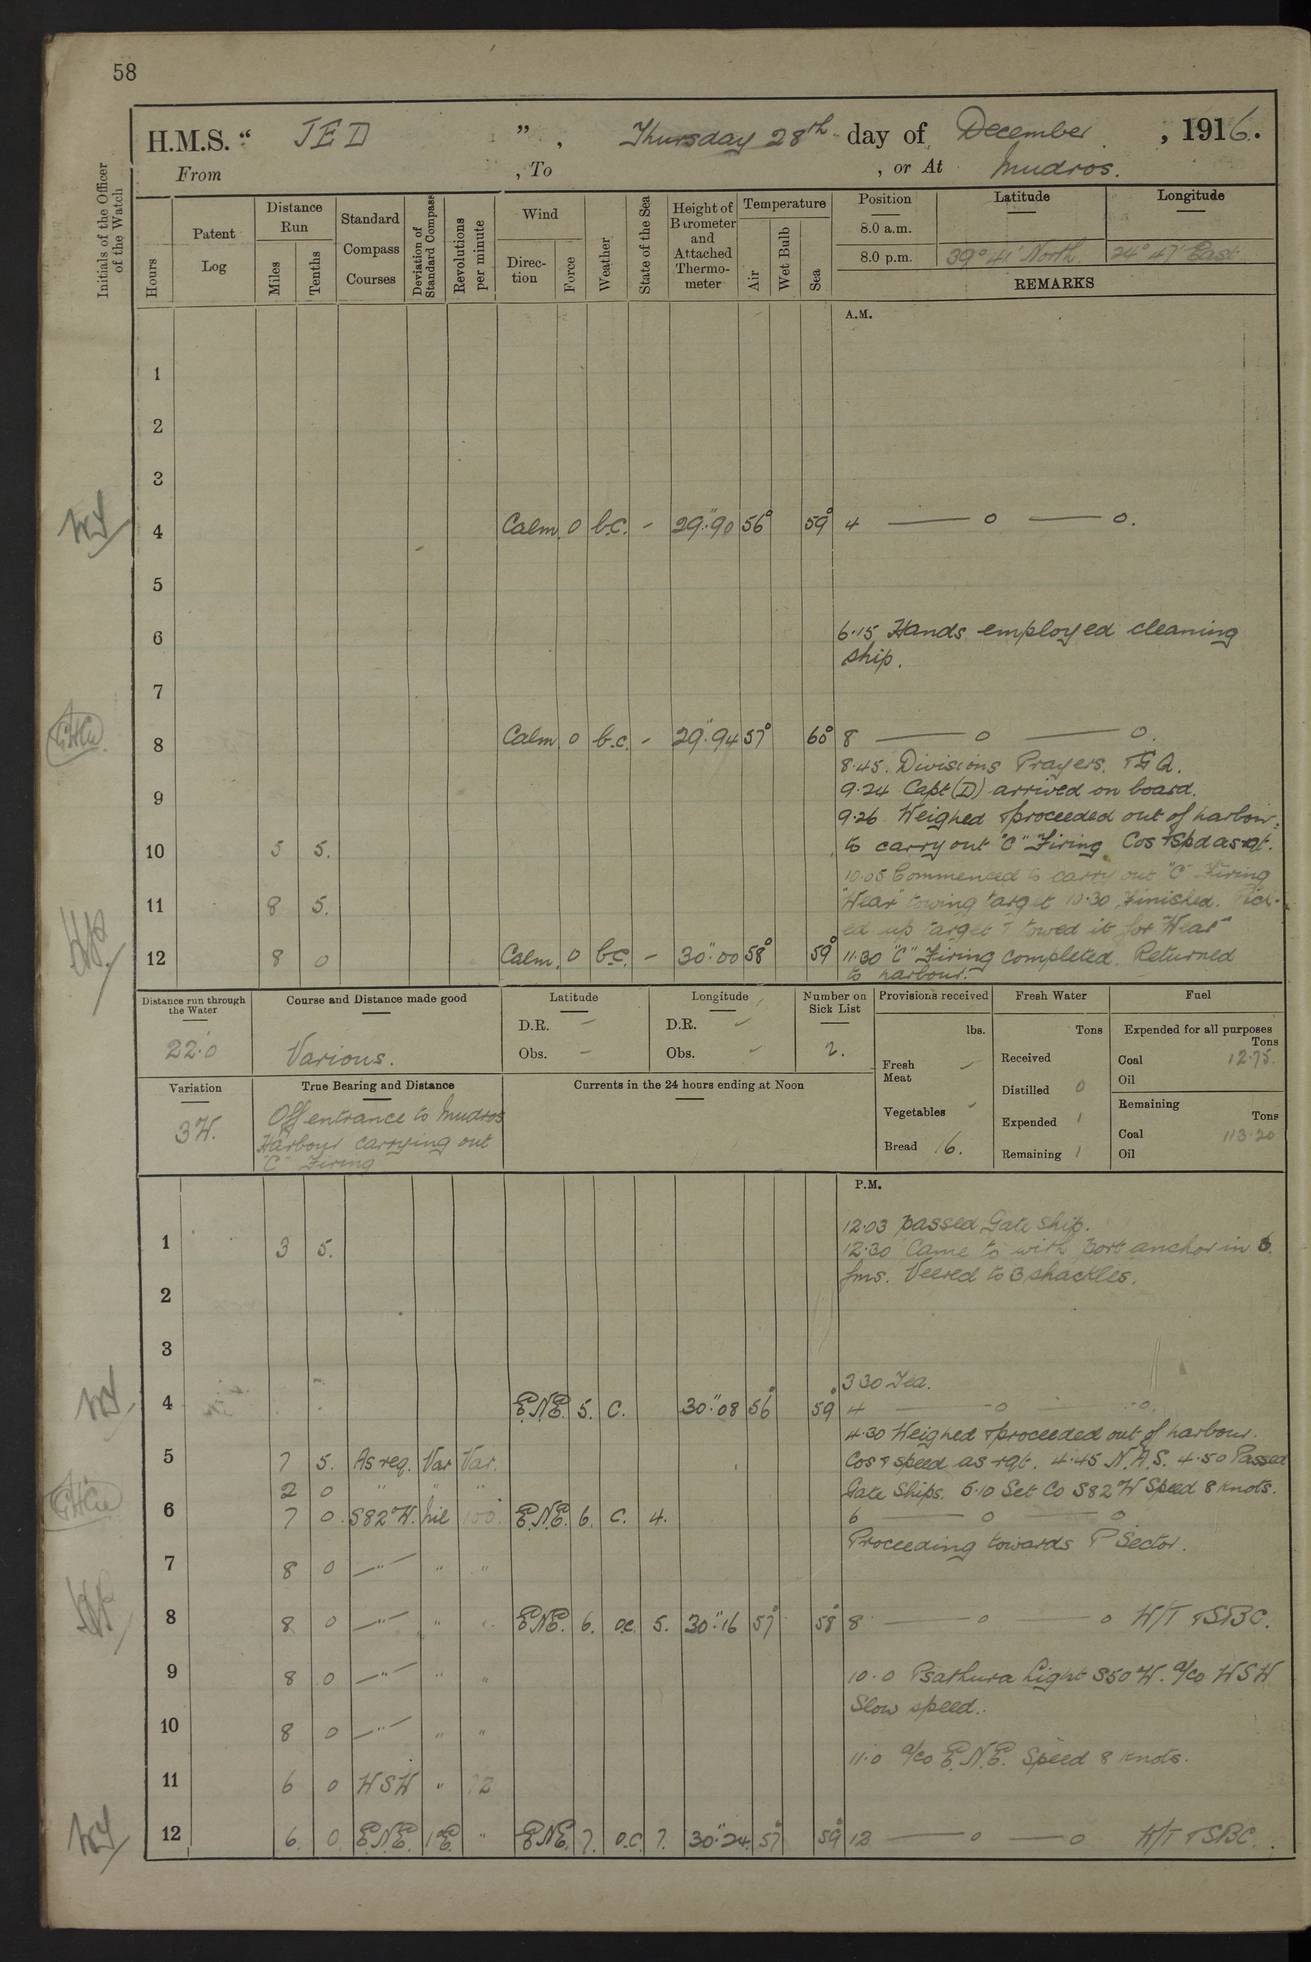 58
H.M.S. "JED", Thursday 28th day of December, 1916.
From , To , or At Mudros.
Initials of the Officer of the Watch
Hours
Patent Log
Distance Run
Miles
Tenths
Standard Compass Courses
Deviation of Standard Compass
Revolutions per minute
Wind
Direction
Force
Weather
State of the Sea
Height of Barometer and Attached Thermometer
Temperature
Air
Wet Bulb
Sea
Position Latitude Longitude
8.0 a.m.
8.0 p.m. 39° 41' North 24° 47' East
REMARKS
A.M.
1
2
3
4 Calm 0 b.c. - 29".90 56° 59° 4 —— o —— o.
5
6 6.15 Hands employed cleaning
ship.
7
8 Calm 0 b.c. - 29".94 57° 60° 8 —— o —— o.
8.45. Divisions Prayers.
9 9.24 Capt (D) arrived on board.
9.26 Weighed & proceeded out of harbour
10 5 5. to carry out "C" Firing Cos & spd as rqt.
10.05 Commenced to carry out "C" Firing
11 8 5. "Wear" towing target 10.30 Finished. Pick-
ed up target & towed it for "Wear"
12 8 0 Calm. 0 b.c. - 30".00 58° 59° 11.30 "C" Firing completed. Returned
to harbour.
Distance run through the Water
22.0
Course and Distance made good
Various.
Latitude
D.R. -
Obs. -
Longitude
D.R. -
Obs. -
Number on Sick List
2.
Provisions received
lbs.
Fresh Meat -
Vegetables -
Bread 16.
Fresh Water
Tons
Received
Distilled 0
Expended 1
Remaining 1
Fuel
Expended for all purposes
Tons
Coal 12.75.
Oil
Remaining
Tons
Coal 113.20
Oil
Variation
3W.
True Bearing and Distance
Off entrance to Mudros
Harbour carrying out
"C" Firing
Currents in the 24 hours ending at Noon
P.M.
12.03 passed Gate ship.
1 3 5. 12.30 Came to with port anchor in 6
fms. Veered to 3 shackles.
2
3
3 30 Tea.
4 E.N.E. 5. C. 30".08 56° 59° 4 —— o —— o.
4.30 Weighed & proceeded out of harbour.
5 7 5. As req. Var Var. Cos & speed as rqt. 4.45 N.A.S. 4.50 Passed
2 0 " " " Gate Ships. 5.10 Set Co S82W Speed 8 knots.
6 7 0. S82W. nil 100. E.N.E. 6. C. 4. 6 —— o —— o
Proceeding towards P Sector.
7 8 0 —"— " "
8 8 0 —"— " " E.N.E. 6. o.c. 5. 30".16 57° 58° 8 —— o —— o W/T & SBC.
9 8 0 —"— " " 10.0 Psathura Light S50W. a/co WSW
Slow speed.
10 8 0 —"— " "
11.0 a/co E.N.E. Speed 8 knots.
11 6 0 WSW " 72
12 6. 0. E.N.E. 1°E. " E.N.E. 7. o.c. 7. 30".24 57° 59° 12 —— o —— o W/T & SBC.